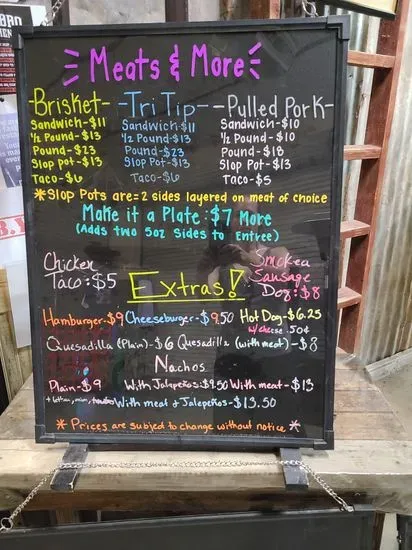 Meats & More
-Brisket- -Tri Tip- -Pulled Pork-
Sandwich-$11 Sandwich-$11 Sandwich-$10
½ Pound-$13 ½ Pound-$13 ½ Pound-$10
Pound-$23 Pound-$23 Pound-$18
Slop Pot-$13 Slop Pot-$13 Slop Pot-$13
Taco-$6 Taco-$6 Taco-$5
*Slop Pots are=2 sides layered on meat of choice
Make it a Plate:$7 More
(Adds two 5oz Sides to Entree)
Chicken
Taco:$5
Smoked
Sausage
Dog:$8
Extras!
Hamburger-$9 Cheeseburger-$9.50 Hot Dog-$6.25
w/cheese .50¢
Quesadilla (Plain)-$6 Quesadilla (with meat)-$8
Nachos
Plain-$9 With Jalapeños $9.50 With meat-$13
With meat & Jalapeños-$13.50
*Prices are subject to change without notice*